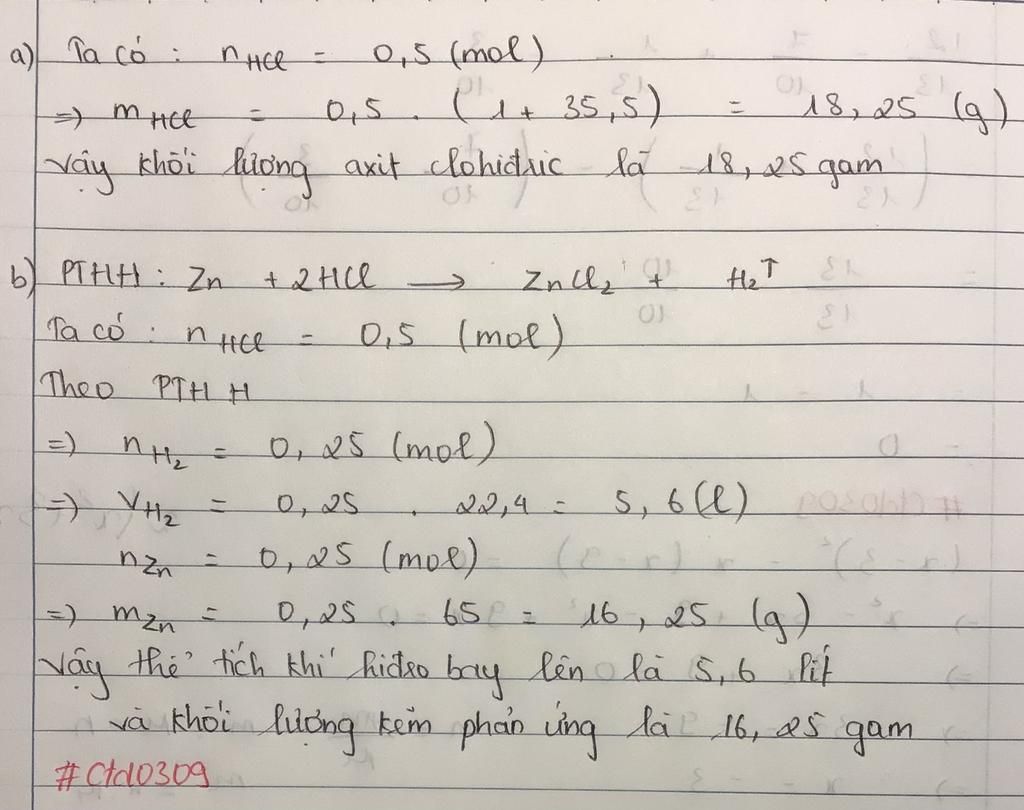 a) Ta có : nHCl = 0,5 (mol)
=) mHCl = 0,5 . (1 + 35,5) = 18,25 (g)
Vậy khối lượng axit clohiđric là 18,25 gam
b) PTHH : Zn + 2HCl → ZnCl2 + H2↑
Ta có : nHCl = 0,5 (mol)
Theo PTHH
=) nH2 = 0,25 (mol)
=) VH2 = 0,25 . 22,4 = 5,6 (l)
nZn = 0,25 (mol)
=) mZn = 0,25 . 65 = 16,25 (g)
Vậy thể tích khí hiđro bay lên là 5,6 lít
và khối lượng kẽm phản ứng là 16,25 gam
#Ctd0309